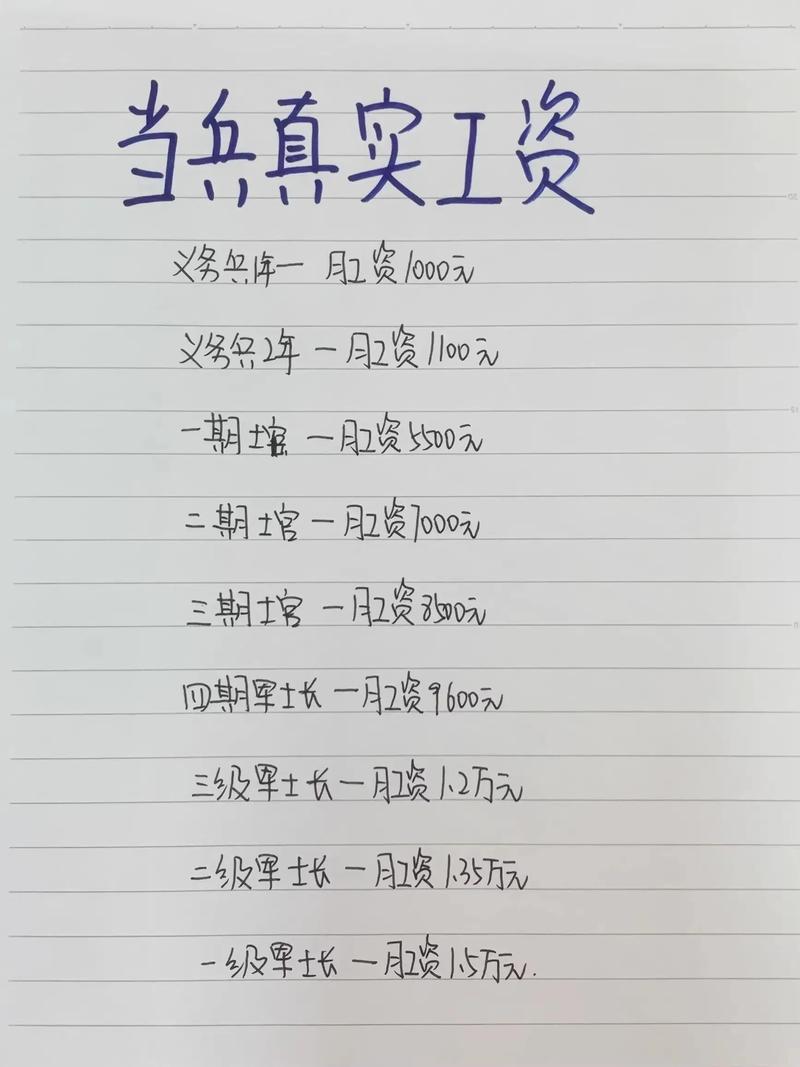 当兵真实工资
义务兵1年一 月工资1000元
义务兵2年 一月工资1100元
一期士官 一月工资5500元
二期士官一月工资7000元
三期士官 一月工资8500元
四期军士长 一月工资9600元
三级军士长一月工资1.2万元
二级军士长 一月工资1.35万元
一级军士长 一月工资1.5万元.